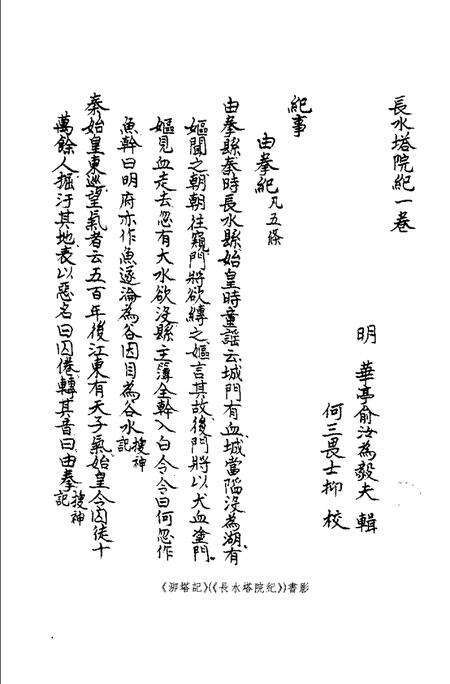 長水塔院紀一卷
明　華亭俞汝為毅夫　輯
何三畏士抑　校
紀事
由拳紀凡五條
由拳縣秦時長水縣始皇時童謠云城門有血城當陷沒為湖有
嫗聞之朝朝往窺門將欲縛之嫗言其故後門將以犬血塗門
嫗見血走去忽有大水欲沒縣主簿令幹入白令令曰何忽作
魚幹曰明府亦作魚遂淪為谷因目為谷水搜神記
秦始皇東巡望氣者云五百年後江東有天子氣始皇令囚徒十
萬餘人掘汙其地表以惡名曰囚倦轉其音曰由拳搜神記
《泖塔記》(《長水塔院紀》)書影